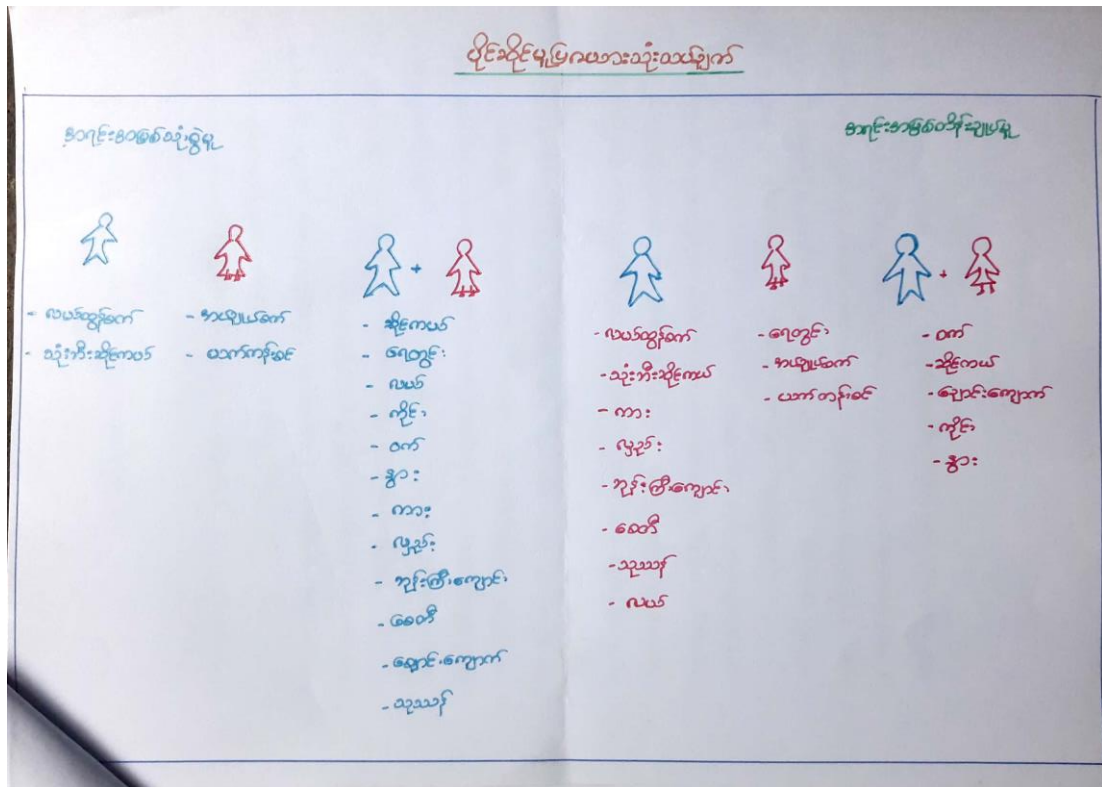 ပိုင်ဆိုင်မှုပြဇယားသုံးသပ်ချက်
အရင်းအမြစ်သုံးစွဲမှု
အရင်းအမြစ်ထိန်းချုပ်မှု
- လယ်ထွန်စက်
- သုံးဘီးဆိုင်ကယ်
- အပ်ချုပ်စက်
- ယက်ကန်းစင်
+
- ဆိုင်ကယ်
- ရေတွင်း
- လယ်
- ကိုင်း
- ဝက်
- နွား
- ကား
- လှည်း
- ဘုန်းကြီးကျောင်း
- စေတီ
- ချောင်းကျောက်
- သုဿန်
- လယ်ထွန်စက်
- သုံးဘီးဆိုင်ကယ်
- ကား
- လှည်း
- ဘုန်းကြီးကျောင်း
- စေတီ
- သုဿန်
- လယ်
- ရေတွင်း
- အပ်ချုပ်စက်
- ယက်ကန်းစင်
+
- ဝက်
- ဆိုင်ကယ်
- ချောင်းကျောက်
- ကိုင်း
- နွား